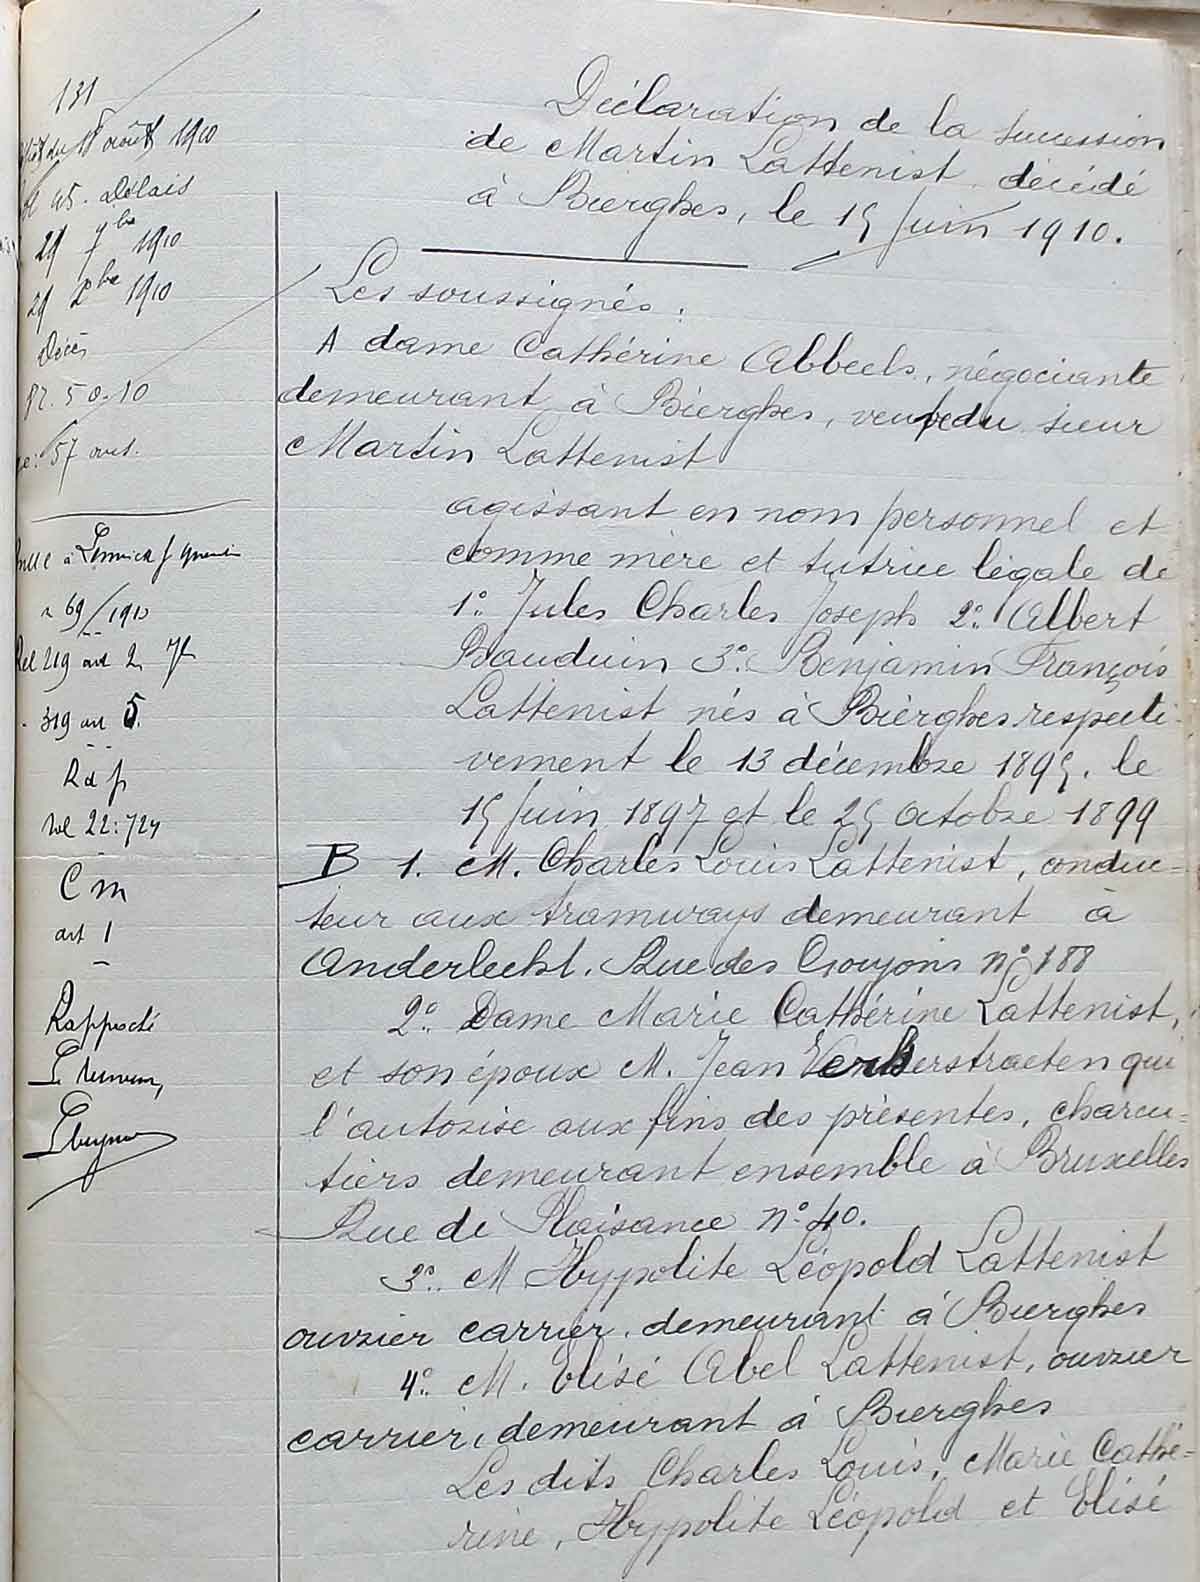 131
août 1910
45. Délais
29 7bre 1910
29 Xbre 1910
Décès
87. 50.10
57 ans.
à Lennick St Quentin
n 69/1910
219 art 2
319 art 5.
Rd
vol 22: 724
Cm
art 1
Rapproché
Déclaration de la succession
de Martin Lattenist décédé
à Bierghes, le 15 Juin 1910.
Les soussignés:
A dame Cathérine Abbeels, négociante
demeurant à Bierghes, veuve du sieur
Martin Lattenist
agissant en nom personnel et
comme mère et tutrice légale de
1° Jules Charles Joseph 2° Albert
Bauduin 3° Benjamin François
Lattenist nés à Bierghes respecti-
vement le 13 décembre 1895, le
15 Juin 1897 et le 25 Octobre 1899
B 1. M. Charles Louis Lattenist, conduc=
teur aux tramways demeurant à
Anderlecht. Rue des Goujons n° 188
2° Dame Marie Cathérine Lattenist,
et son époux M. Jean Verberstraeten qui
l'autorise aux fins des présentes, charcu=
tiers demeurant ensemble à Bruxelles
Rue de Plaisance n° 40.
3° M Hyppolite Léopold Lattenist
ouvrier carrier, demeurant à Bierghes
4° M. Elisé Abel Lattenist, ouvrier
carrier, demeurant à Bierghes
Les dits Charles Louis, Marie Cathé=
rine, Hyppolite Léopold et Elisé